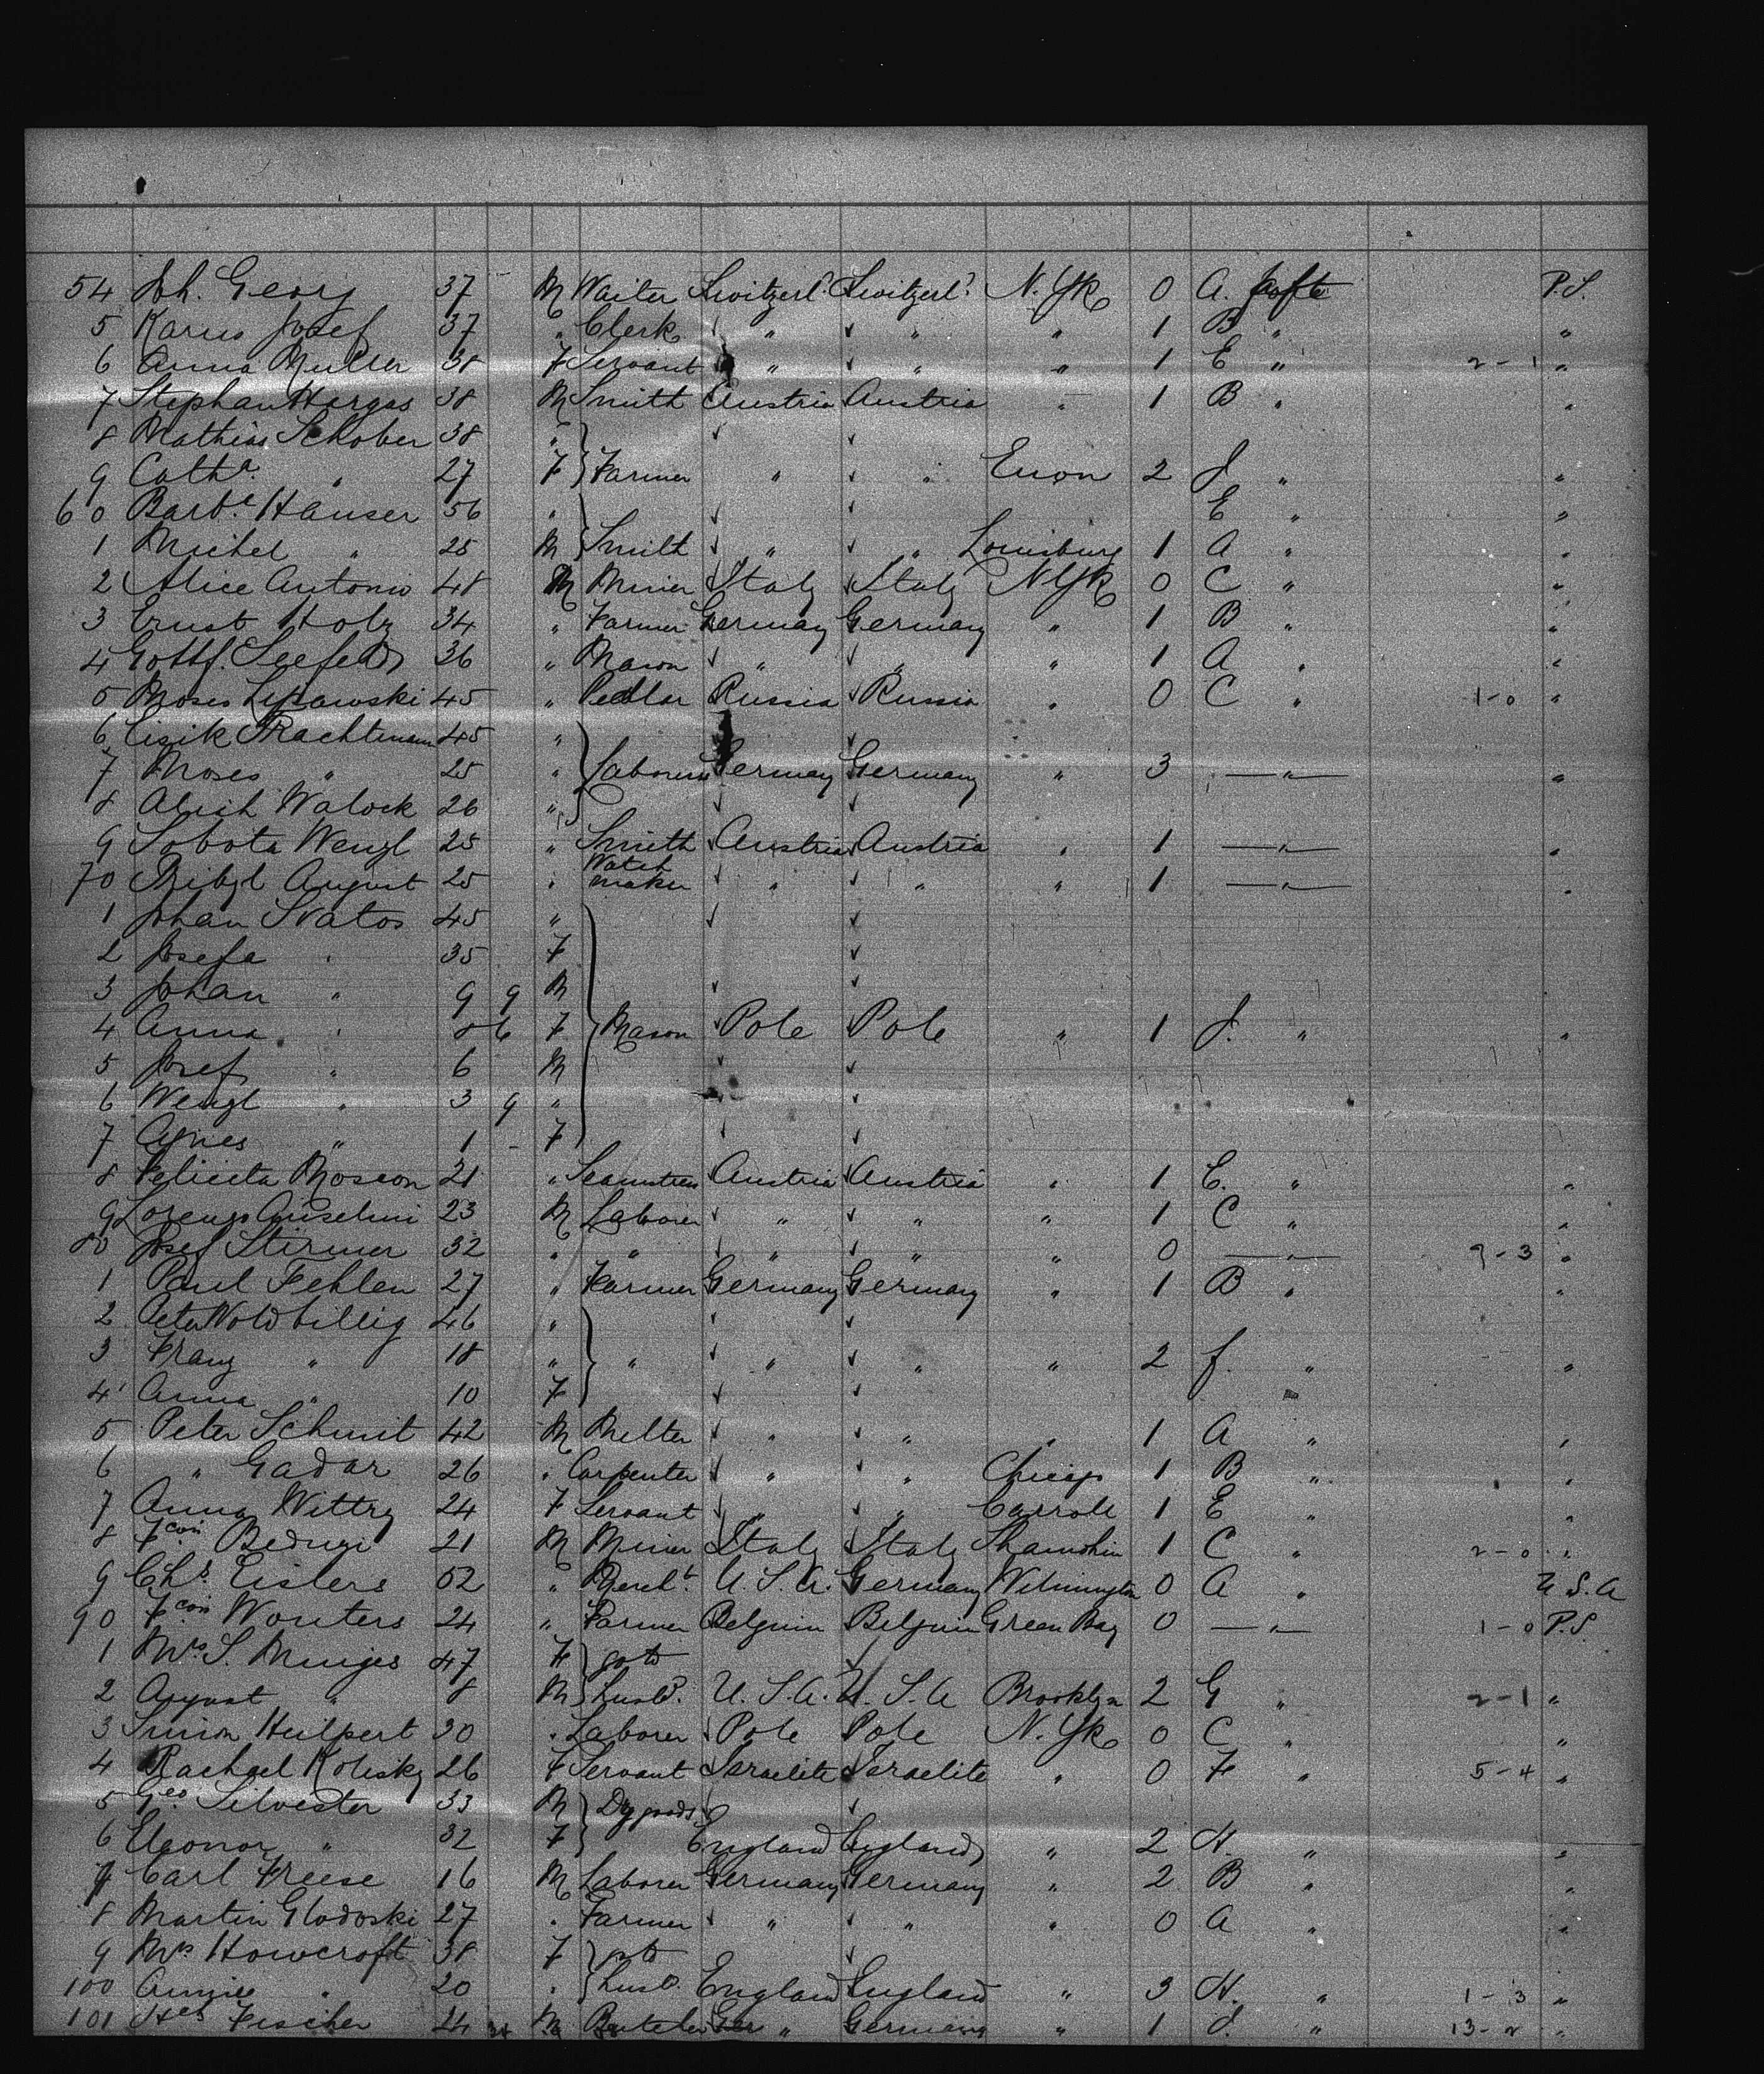 54 Joh. Georg 37 M Waiter Switzerld. Switzerld. N. Yk 0 A. P.S.
5 Karus Josef 37 " Clerk " " " 1 B " "
6 Anna Muller 38 F Servant " " " 1 E " 2-1 "
7 Stephan Horgas 38 M Smith Austria Austria " 1 B " "
8 Mathias Schober 38 "
9 Cath.a " 27 F Farmer " " Enon 2 J " "
60 Barb.a Hauser 56 " E " "
1 Michel " 25 M Smith " " Louisburg 1 A " "
2 Alice Antonio 48 M Miner Italy Italy N Yk 0 C " "
3 Ernst Holz 34 " Farmer Germany Germany " 1 B " "
4 Gottf. Seefeld 36 " Mason " " " 1 A " "
5 Moses Lipawski 45 " Pedlar Russia Russia " 0 C " 1-0 "
6 Eisik Trachtmann 45 "
7 Moses " 25 " Laborers Germany Germany " 3 " "
8 Walock 26 "
9 Sobota Wenzl 25 " Smith Austria Austria " 1 " "
70 Pribyl August 25 " Watch maker " " " 1 " "
1 Johan Svatos 45 "
2 Josefa " 35 F
3 Johan " 9 9 M
4 Anna " 8 6 F Mason Pole Pole " 1 J. " "
5 Josef " 6 M
6 Wenzl " 3 9 "
7 Agnes " 1 - F
8 Felicita Moscon 21 " Seamstress Austria Austria " 1 E. " "
9 Lorenzo Anselmi 23 M Laborer " " " 1 C " "
80 Josef Stirmer 32 " " " " " 0 " 9-3 "
1 Paul Fehlen 27 " Farmer Germany Germany " 1 B " "
2 Peter Woldbillig 46 "
3 Franz " 18 " " " " " 2 J. " "
4 Anna " 10 F
5 Peter Schmit 42 M Melter " " " 1 A " "
6 " Gadar 26 " Carpenter " " Chicago 1 B " "
7 Anna Wittry 24 F Servant " " Carroll 1 E " "
8 Fcois Beduzi 21 M Miner Italy Italy Shamokin 1 C " 2-0 "
9 Chs. Eisters 52 " Mercht. U. S. A. Germany Wilmington 0 A " U S. A
90 Fcois Wouters 24 " Farmer Belgium Belgium Green Bay 0 " 1-0 P.S.
1 Mrs. S. Minges 47 F go to
2 August " 8 M husbd. U. S. A. U. S. A Brooklyn 2 G " 2-1 "
3 Simon Heilpert 30 " Laborer Pole Pole N. Yk 0 C " "
4 Rachael Kolisky 26 F Servant Israelite Israelite " 0 F " 5-4 "
5 Geo Silvester 33 M Dry goods
6 Eleonor " 32 F England England " 2 H. " "
7 Carl Freese 16 M Laborer Germany Germany " 2 B " "
8 Martin Glodoski 27 " Farmer " " " 0 A " "
9 Mrs. Howcroft 38 F go to
100 Annie " 20 " husbd. England England " 3 H. " 1-3 "
101 Hch Fischer 24 M Butcher Ger " Germany " 1 J. " 13-2 "